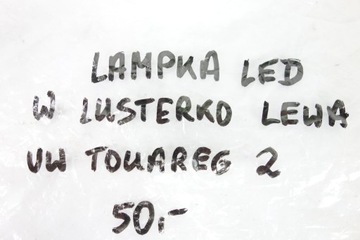 LAMPKA LED
W LUSTERKO LEWA
VW TOUAREG 2
50,-